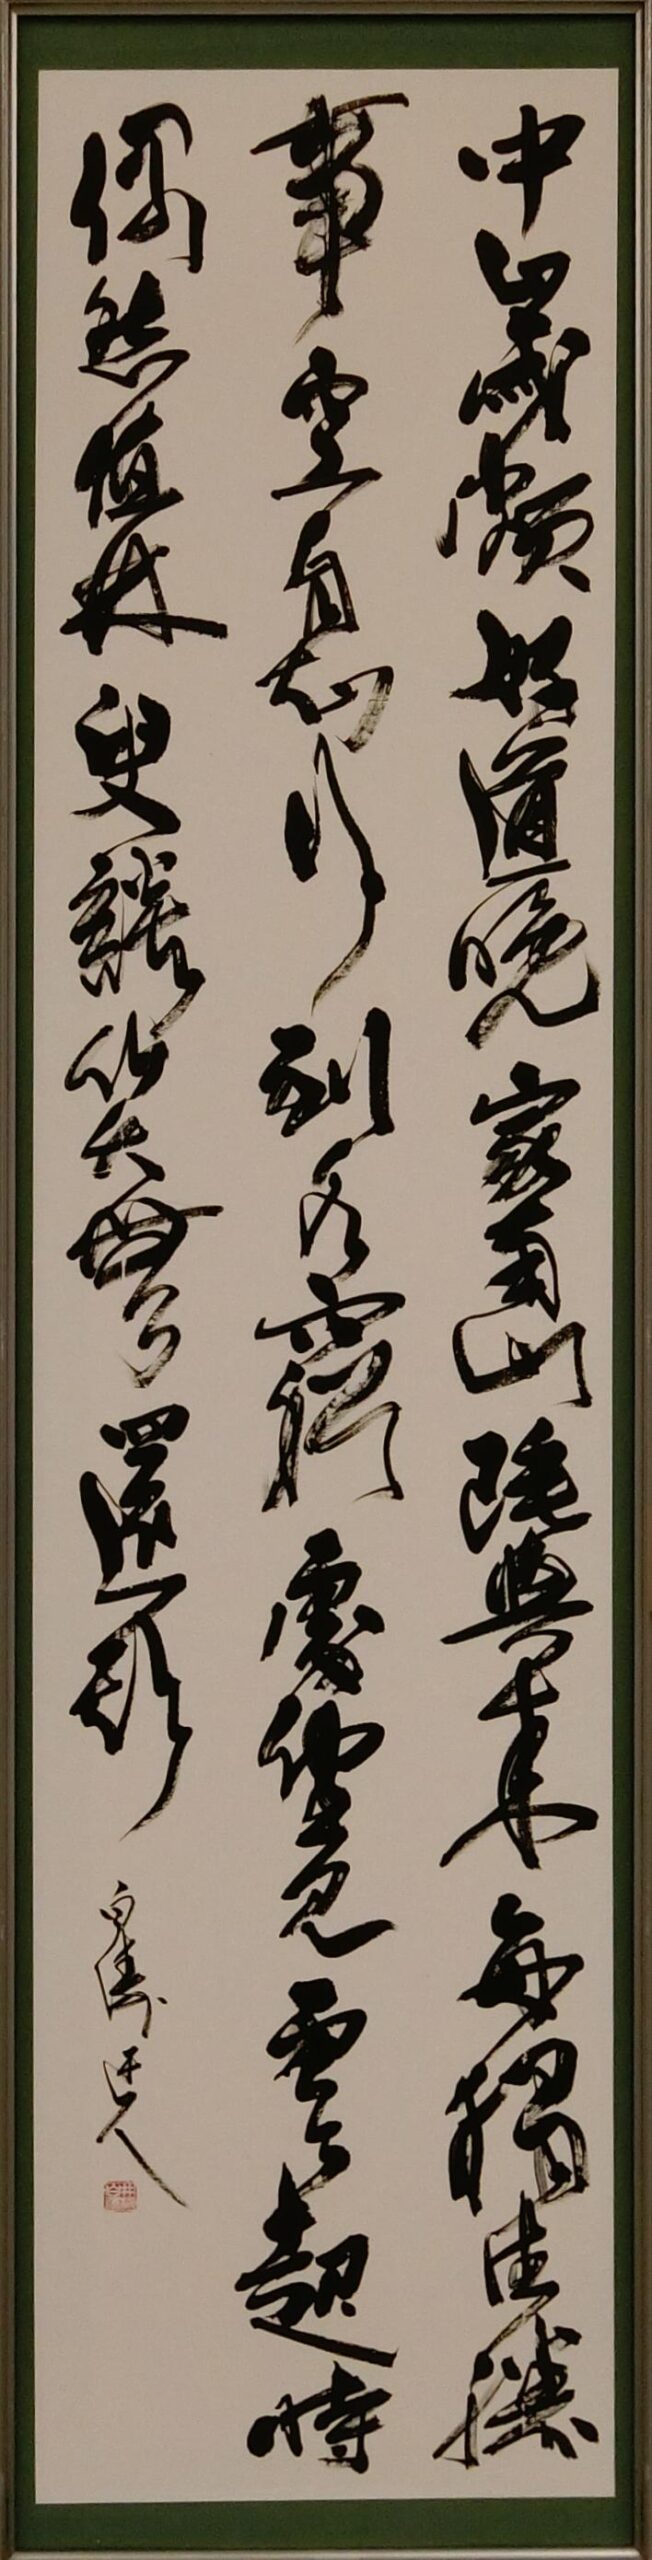 中歲頗好道晚家南山陲興來每獨往勝
事空自知行到水窮處坐見雲起時
偶然值林叟談笑無還期